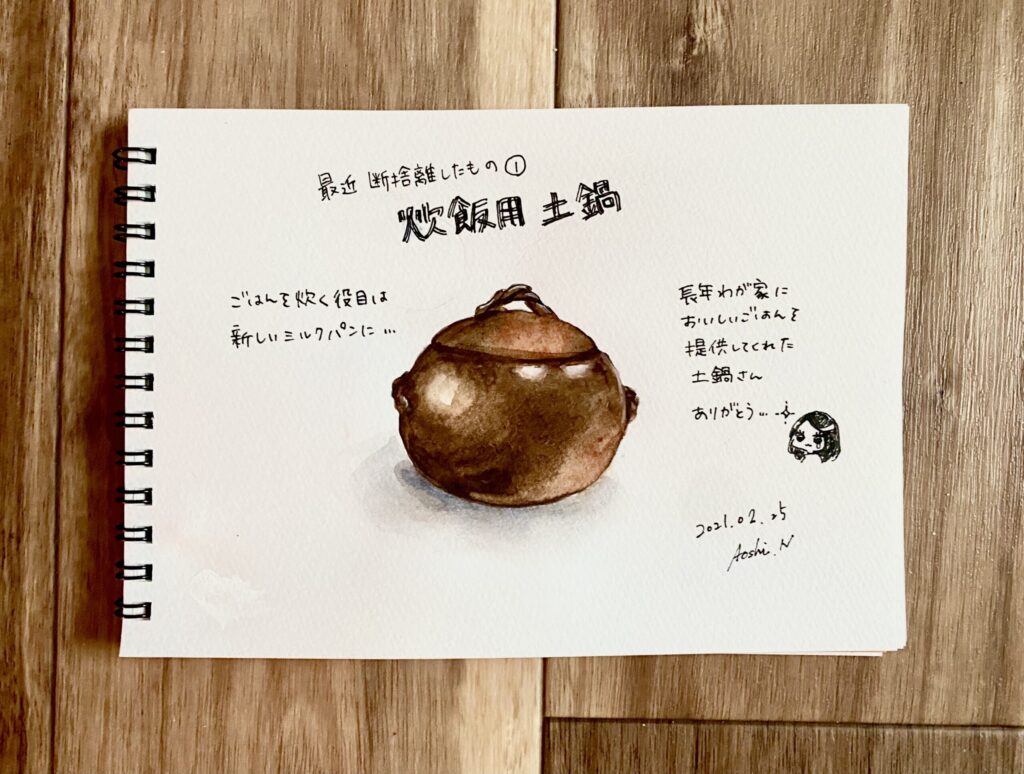 最近 断捨離したもの ①
炊飯用 土鍋
ごはんを炊く役目は
新しいミルクパンに…
長年わが家に
おいしいごはんを
提供してくれた
土鍋さん
ありがとう…
2021.02.25
Aoshi.N